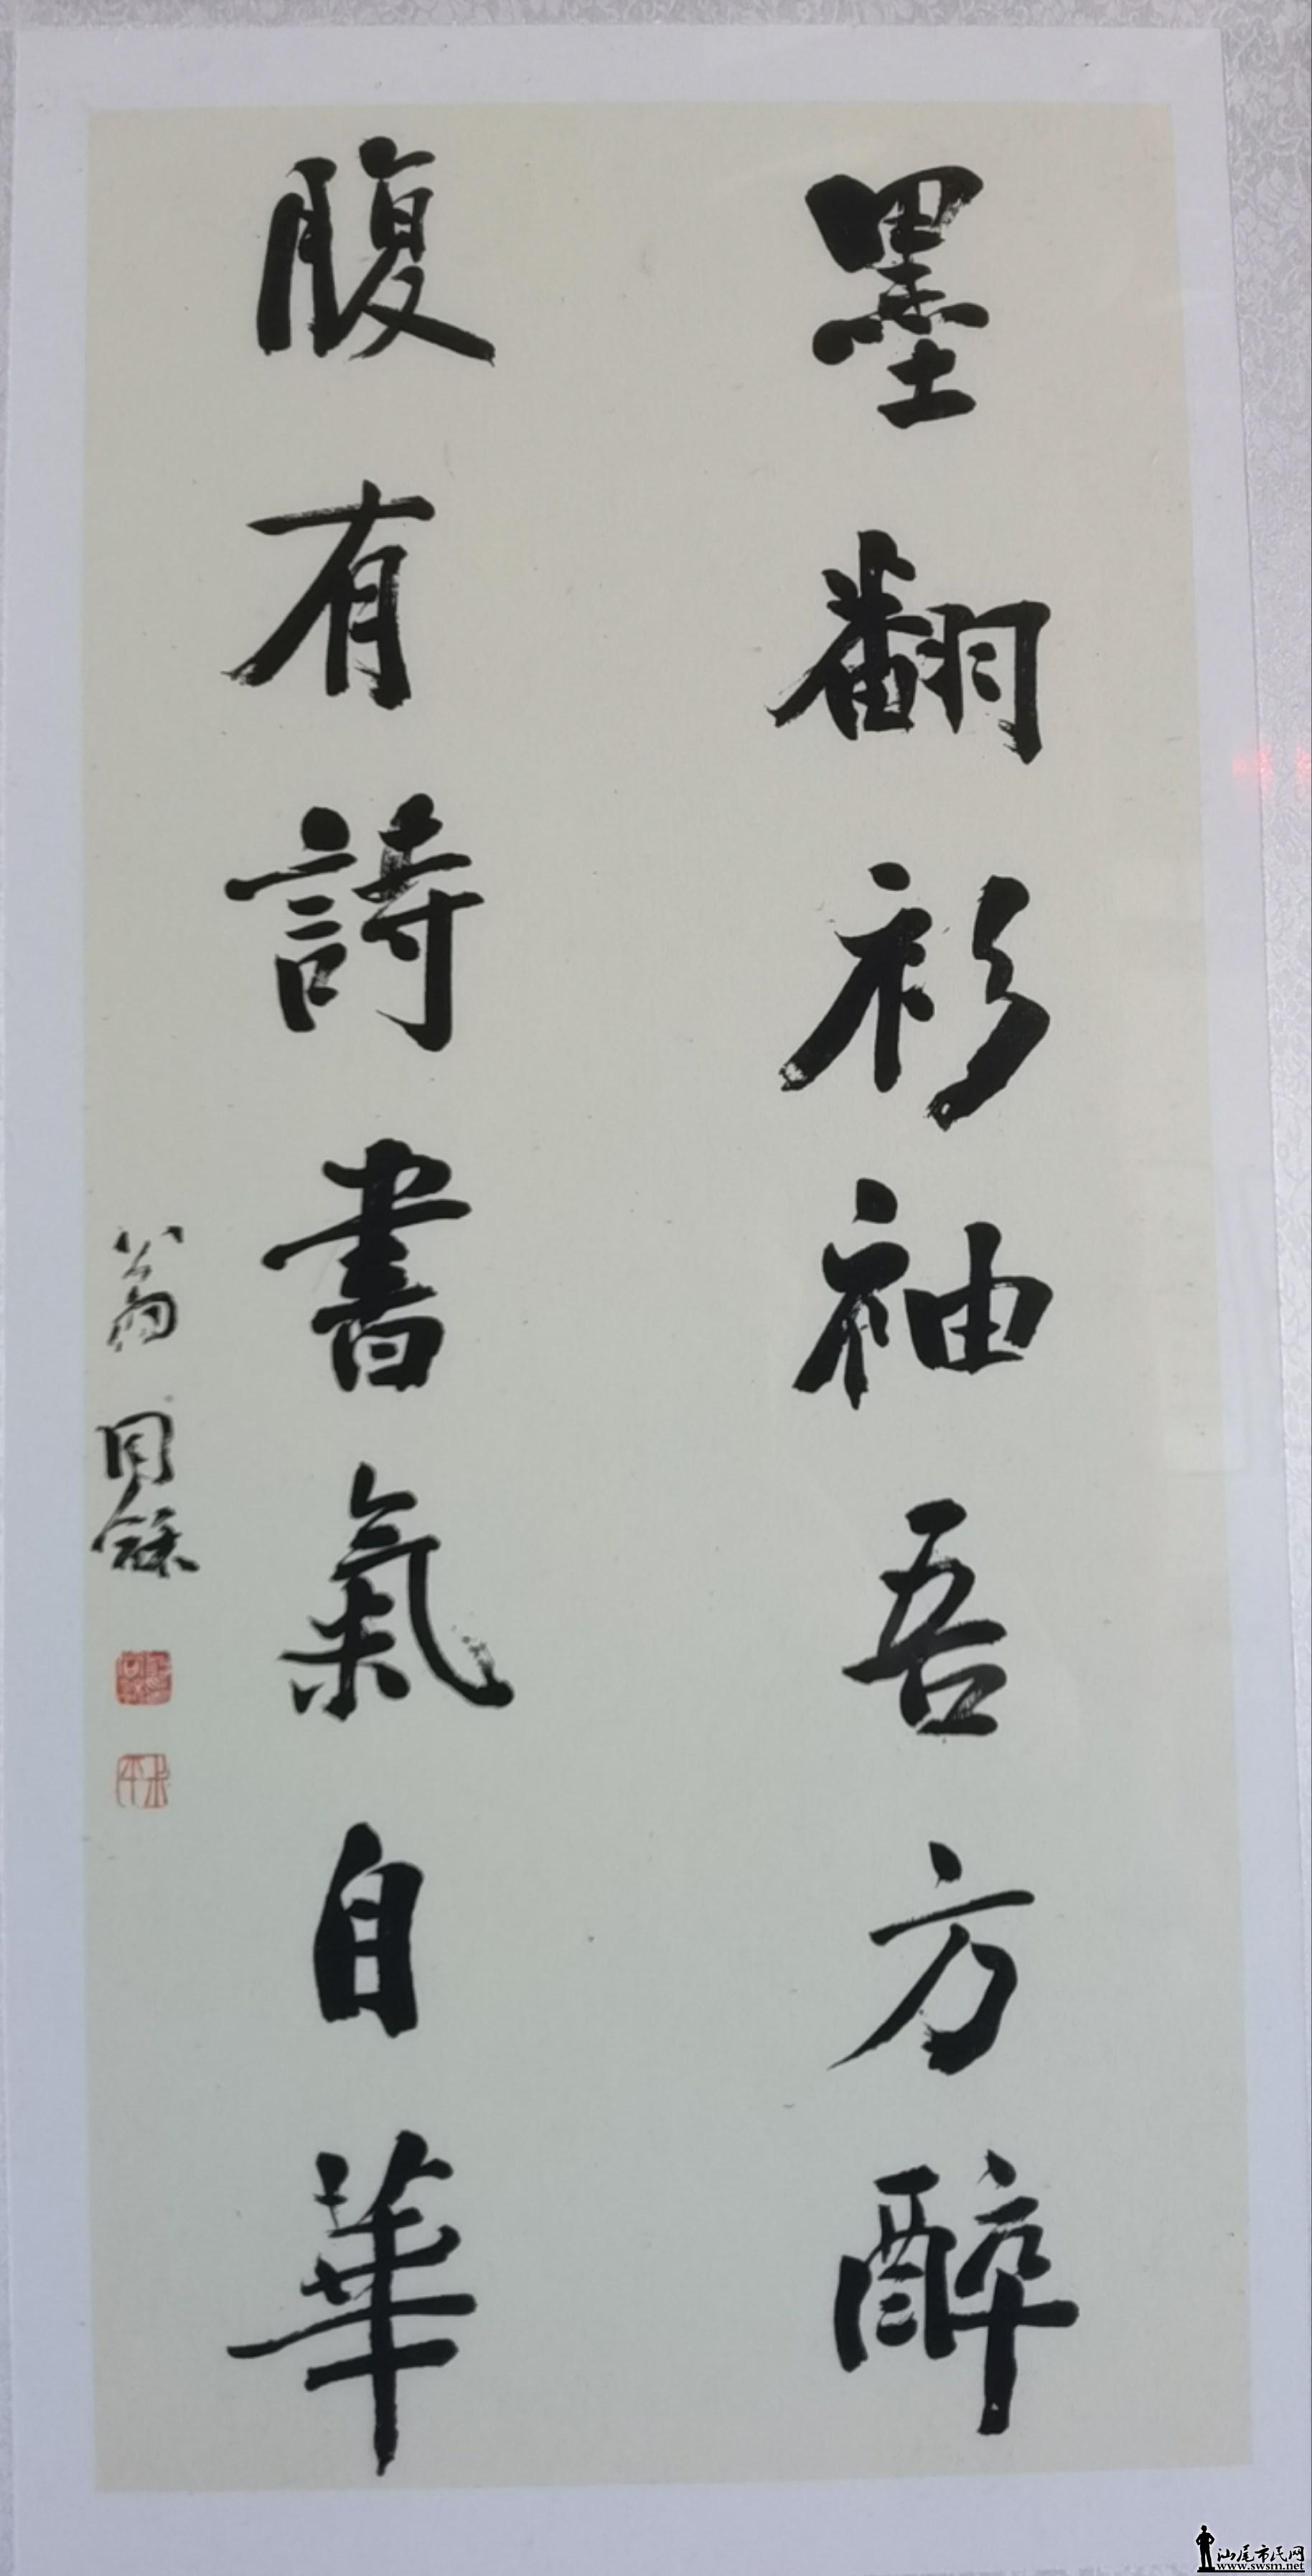 墨翻衫袖吾方醉
腹有詩書氣自華
翁同龢
汕尾市民网
www.swsm.net